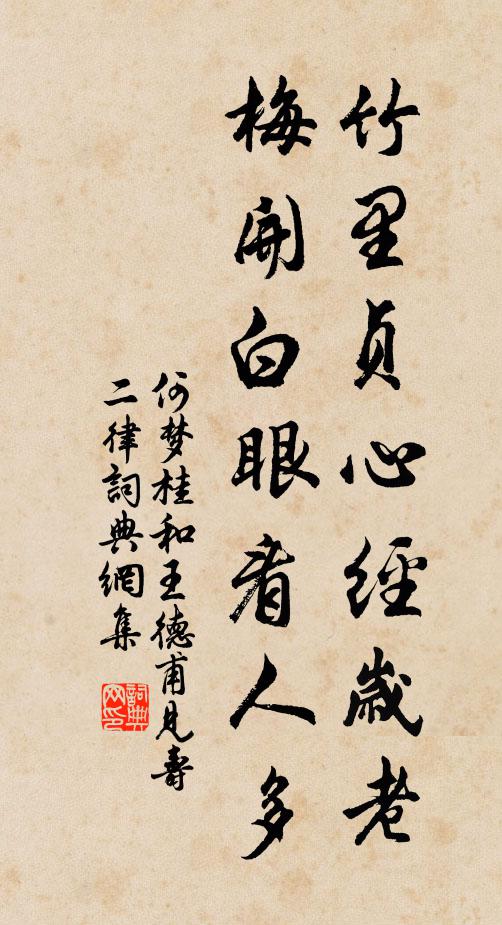 竹里貞心經歲老
梅開白眼看人多
何梦桂和王德甫見壽
二律詞典網集
詞典
网印